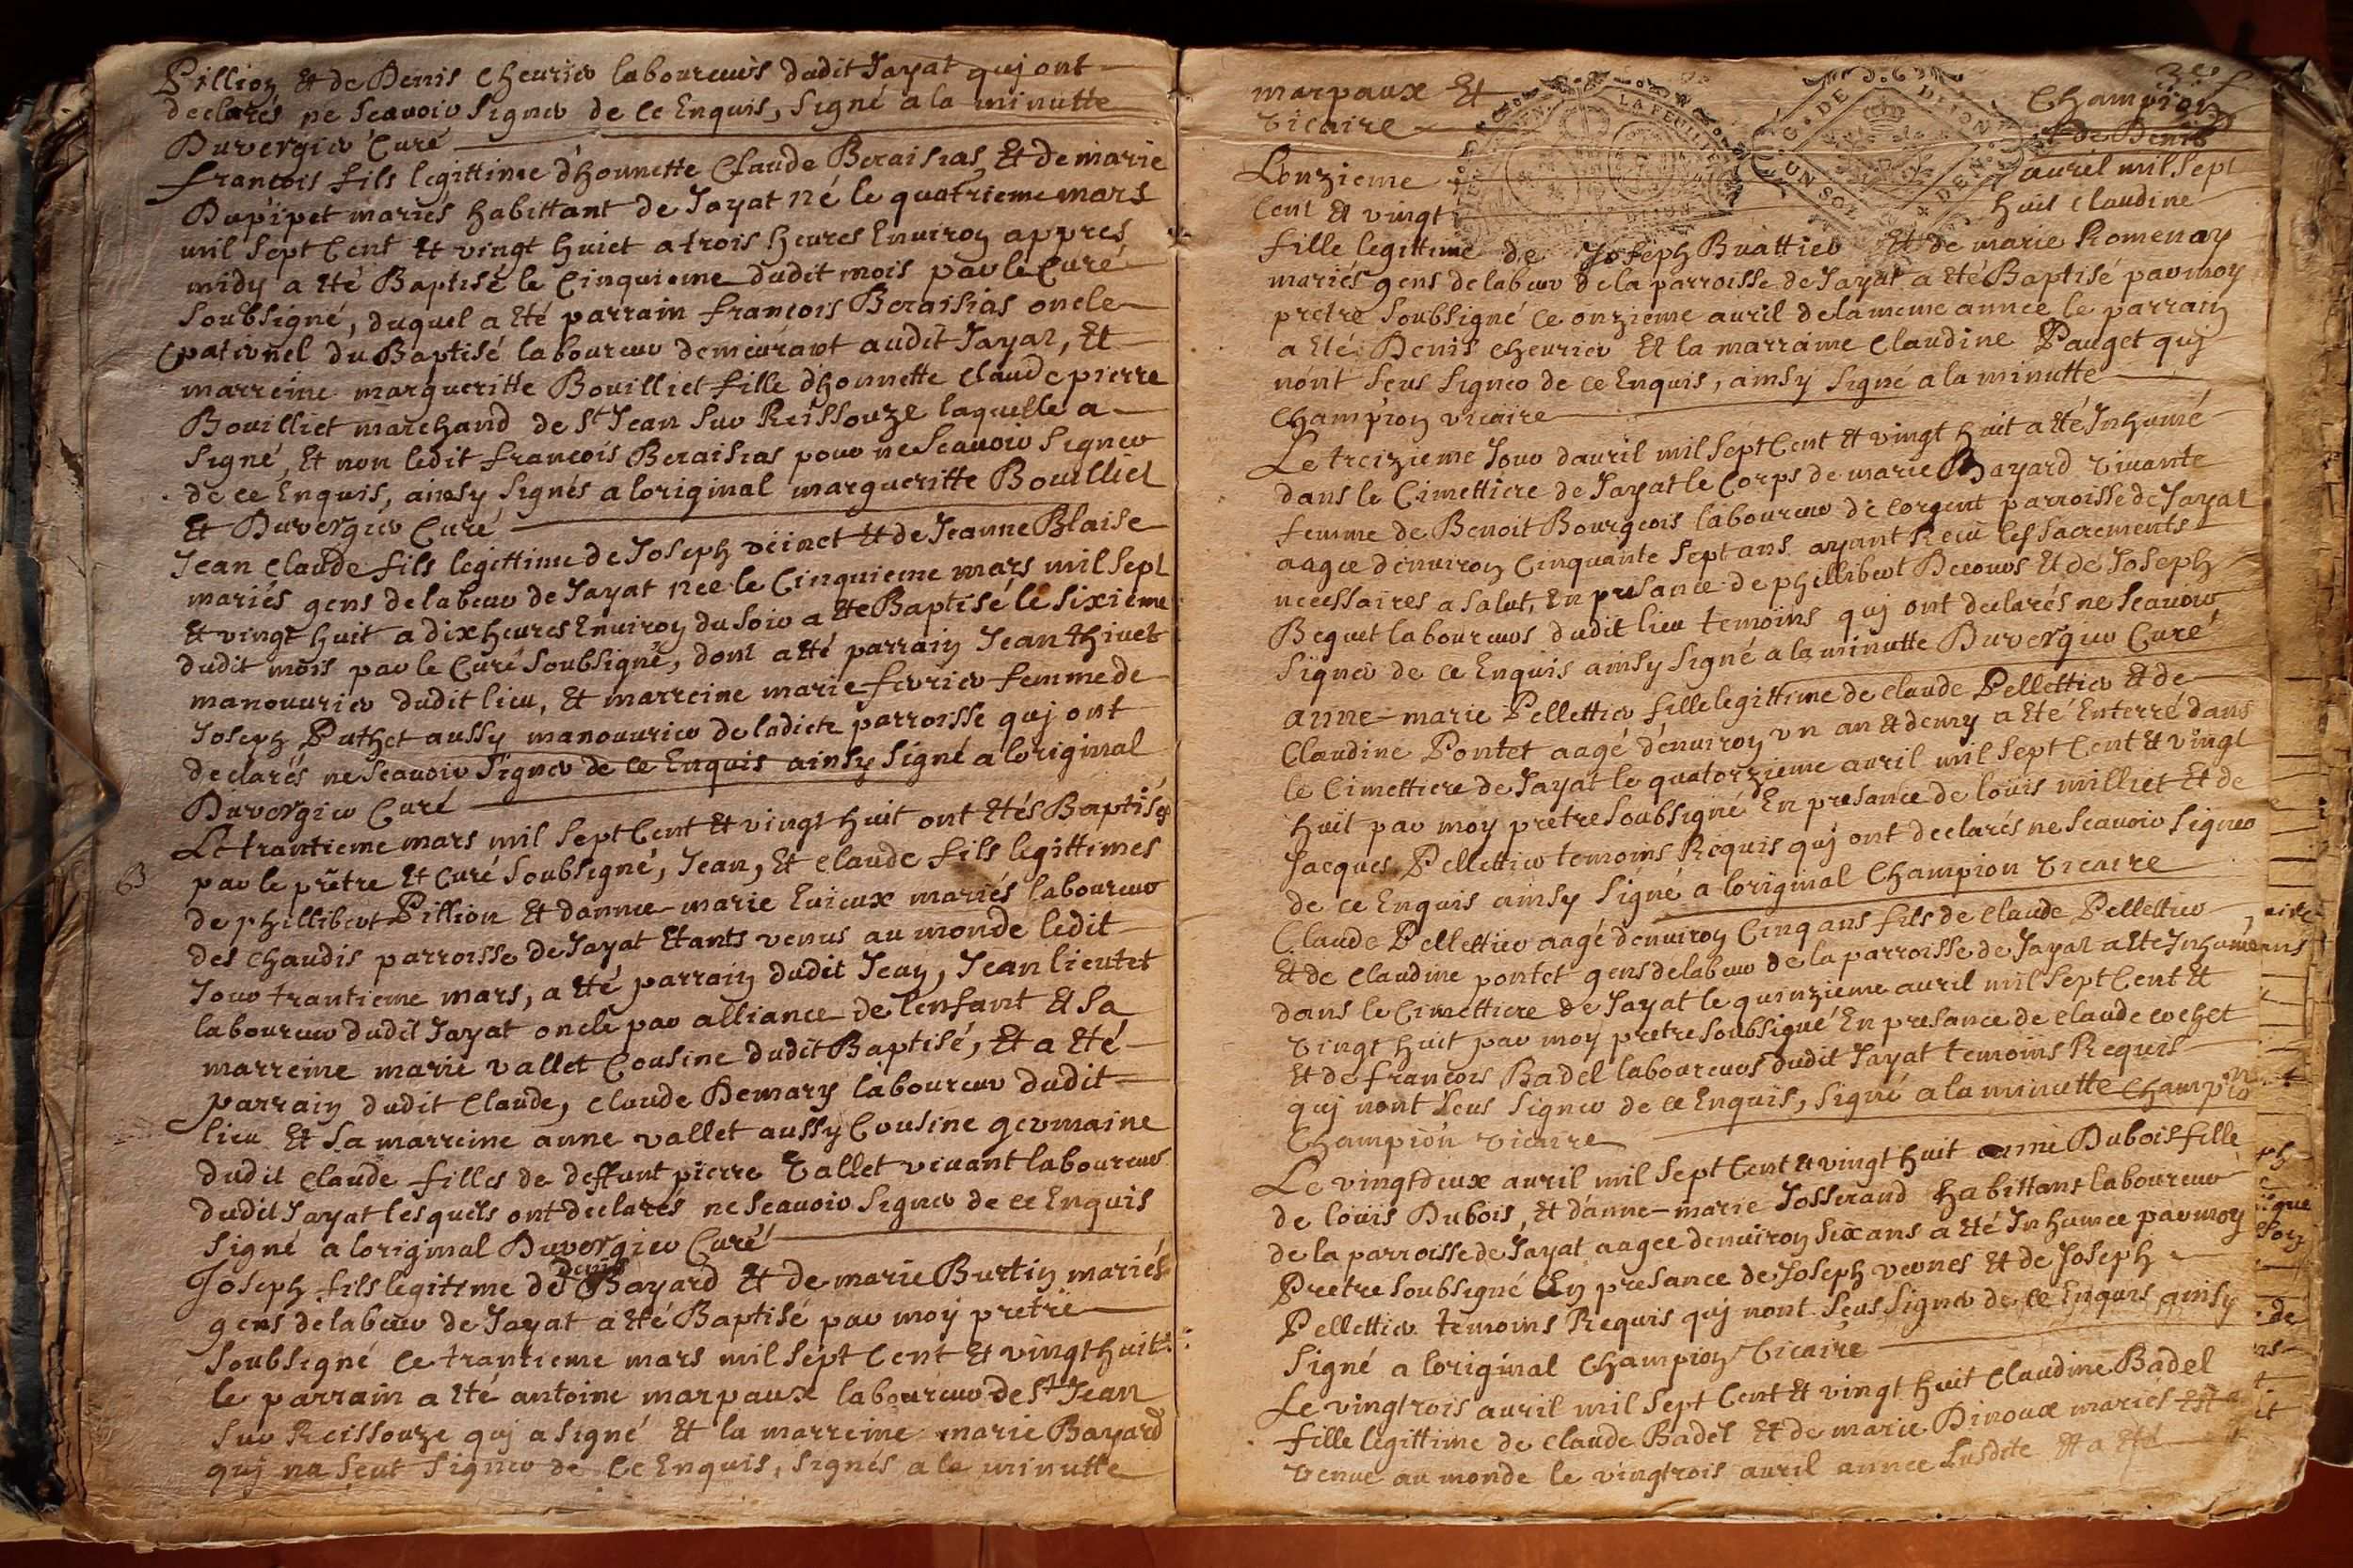 Pillion Et de Denis Cheurier laboureurs dudit Jayat quj ont
declarés ne Scavoir Signer de ce Enquis, Signé a la minutte
Duvergier Curé
francois fils legittime d'honnette Claude Beraisias, Et de marie
Dupipet mariés habittant de Jayat né le quatrieme mars
mil Sept Cent Et vingt huict a trois heures Enuiron appres
midy a Eté Baptisé le Cinquieme dudit mois par le Curé
Soubsigné, duquel a Eté parrain francois Beraisias oncle
paternel du Baptisé laboureur demeurant audit Jayat, Et
marreine margueritte Bouilliet fille d'honnette Claude pierre
Bouilliet marchand de St Jean Sur Reissouze laquelle a
Signé, Et non ledit francois Beraisias pour ne Scavoir Signer
de ce Enquis, ainsy Signés a loriginal margueritte Bouilliet
Et Duvergier Curé
Jean Claude fils legittime de Joseph veinet Et de Jeanne Blaise
mariés gens de labeur de Jayat née le Cinquieme mars mil Sept
Et vingt huit a dix heures Enuiron du Soir a Eté Baptisé le Sixieme
dudit mois par le Curé Soubsigné, dont a Eté parrain Jean thiuet
manouurier dudit lieu, Et marreine marie feurier femme de
Joseph Puthet aussy manouurier de ladicte parroisse quj ont
declarés ne Scavoir Signer de ce Enquis ainsy Signé a loriginal
Duvergier Curé
Le trantieme mars mil Sept Cent Et vingt huit ont Etés Baptisés
63 par le prêtre Et Curé Soubsigné, Jean, Et Claude fils legittimes
de phillibert Pillion Et danne-marie Euieux mariés laboureur
des Chaudis parroisse de Jayat Etants venus au monde ledit
Jour trantieme mars, a Eté parrain dudit Jean, Jean lieutet
laboureur dudit Jayat oncle par alliance de lenfant Et Sa
marreine marie vallet Cousine dudit Baptisé, Et a Eté
parrain dudit Claude, Claude Demary laboureur dudit
lieu Et Sa marreine anne vallet aussy Cousine germaine
dudit Claude filles de deffunt pierre Vallet vivant laboureur
dudit Jayat lesquels ont declarés ne Scavoir Signer de ce Enquis
Signé a loriginal Duvergier Curé
Joseph fils legitime de Denis Bayard Et de marie Burtin mariés
gens de labeur de Jayat a Eté Baptisé par moy prêtre
Soubsigné le trantieme mars mil Sept Cent Et vingt huit
le parrain a Eté antoine marpaux laboureur de St Jean
Sur Reissouze quj a Signé Et la marreine marie Bayard
quj na Seut Signer de ce Enquis, Signés a la minutte
marpaux Et Champion
Vicaire
Lonzieme aurel mil Sept
Cent Et vingt huit Claudine
fille legittime de Joseph Buattier Et de marie Romenay
mariés gens de labeur de la parroisse de Jayat a Eté Baptisé par moy
pretre Soubsigné le onzieme auril de la meme année le parrain
a Eté Denis Cheurier Et la marraine Claudine Pauget quj
nont Seus Signer de ce Enquis, ainsy Signé a la minutte
Champion vicaire
Le treizieme Jour dauril mil Sept Cent Et vingt huit a Eté Inhumé
dans le Cimettiere de Jayat le Corps de marie Bayard vivante
femme de Benoit Bourgeois laboureur de Corgent parroisse de Jayat
aagée denuiron Cinquante Sept ans ayant Receu les Sacrements
necessaires a Salut, En presance de phillibert Et de Joseph
Bequet laboureurs dudit lieu temoins quj ont declarés ne Scavoir
Signer de ce Enquis ainsy Signé a la minutte Duvergier Curé
anne-marie Pellettier fille legittime de Claude Pellettier Et de
Claudine Pontet aagé denuiron un an Et demy a Eté Enterré dans
le Cimettiere de Jayat le quatorzieme auril mil Sept Cent Et vingt
huit par moy pretre Soubsigné En presance de louis milliet Et de
Jacques Pellettier temoins Requis quj ont declarés ne Scavoir Signer
de ce Enquis ainsy Signé a loriginal Champion Vicaire
Claude Pellettier aagé denuiron Cinq ans fils de Claude Pellettier
Et de Claudine pontet gens de labeur de la parroisse de Jayat a Eté Inhumé
dans le Cimettiere de Jayat le quinzieme auril mil Sept Cent Et
vingt huit par moy pretre Soubsigné En presance de Claude cochet
Et de francois Badel laboureurs dudit Jayat temoins Requis
quj nont Seus Signer de ce Enquis, Signé a la minutte Champion
Champion Vicaire
Le vingtdeux auril mil Sept Cent Et vingt huit anne Dubois fille
de louis Dubois, Et danne-marie Josserand habittans laboureur
de la parroisse de Jayat aagée denuiron Six ans a Eté Inhumée par moy
Pretre Soubsigné En presance de Joseph vernes Et de Joseph
Pellettier temoins Requis quj nont Seus Signer de ce Enquis ainsy
Signé a loriginal Champion Vicaire
Le vingtrois auril mil Sept Cent Et vingt huit Claudine Badel
fille legittime de Claude Badel Et de marie Dinoux mariés Est
venue au monde le vingtrois auril année Susdite Et a Eté